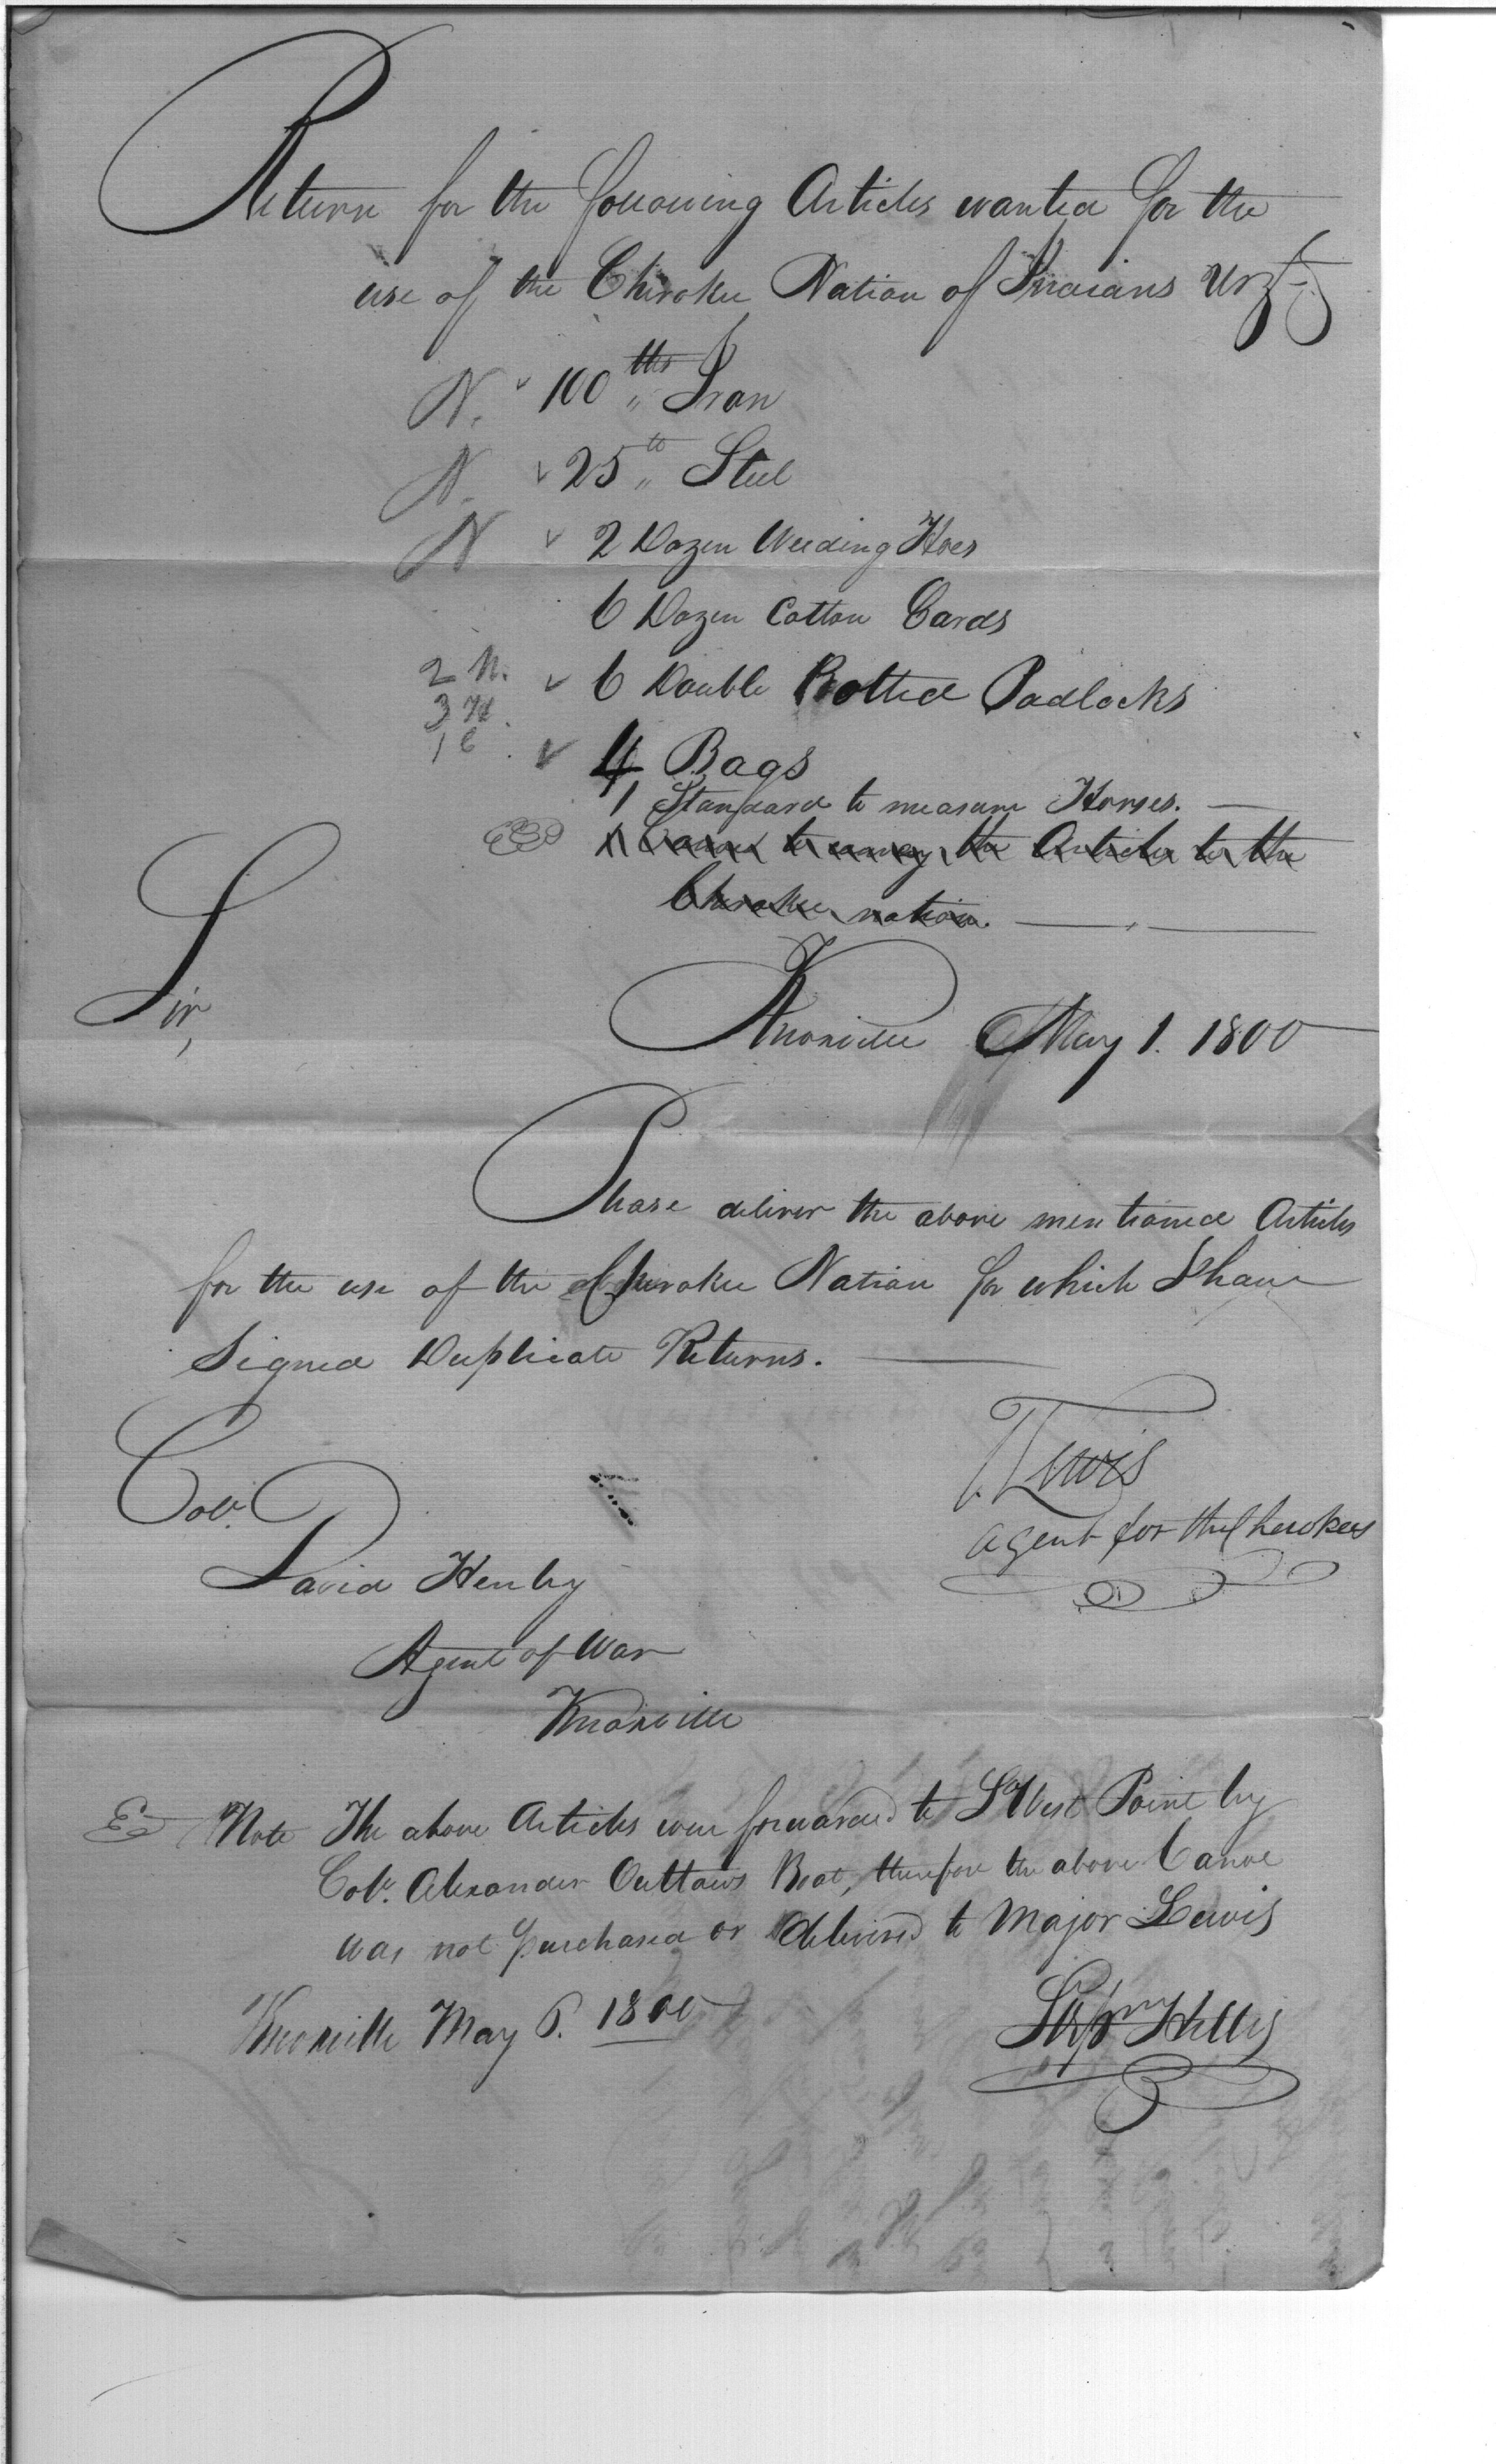 Return for the following Articles wanted for the
use of the Cherokee Nation of Indians Vizt
N. v 100 lbs Iran
N. v 25 lb Steel
N v 2 Dozen Weeding Hoes
6 Dozen Cotton Cards
2 N. v 6 Double Bolted Padlocks
3 H.
1 C. v 4 Bags
1 Standard to measure Horses.
1 Canoe to convey the Articles to the
Cherokee nation.
Sir,
Knoxville May 1. 1800
Please deliver the above mentioned Articles
for the use of the Cherokee Nation for which I have
Signed Duplicate Returns.
T. Lewis
agent for the Cherokees
Colo.
David Henley
Agent of War
Knoxville
Note The above Articles were forwarded to S West Point by
Colo. Alexander Outlaws Boat, therefore the above Canoe
was not purchased or delivered to Major Lewis
Knoxville May 6. 1800
Stepn Hillis